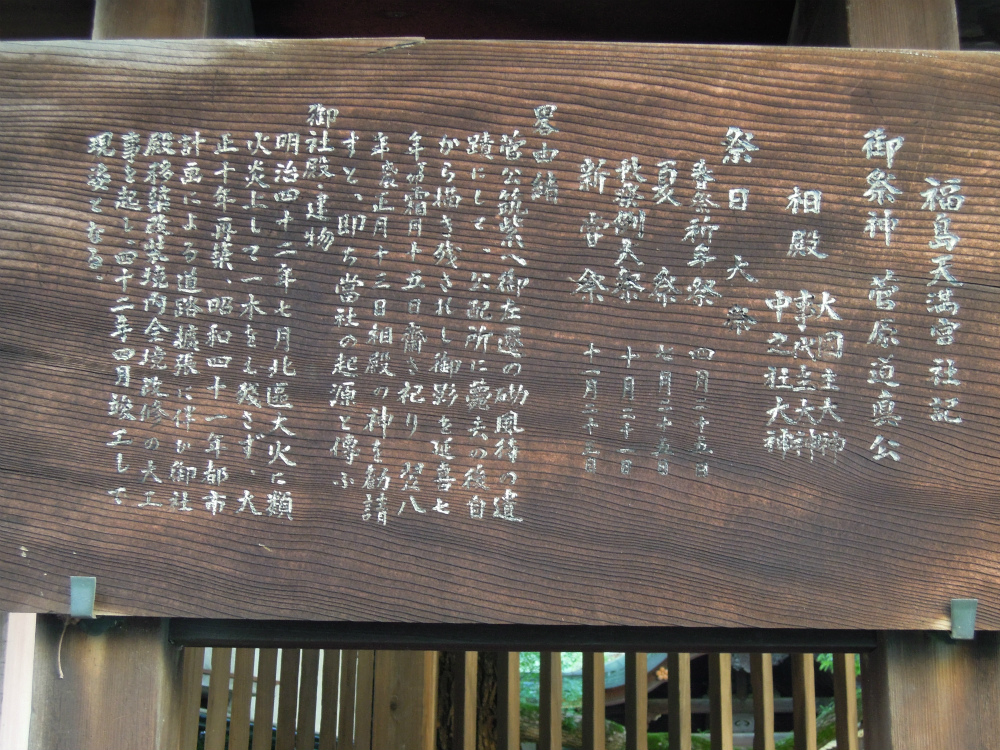 福島天満宮社記
御祭神 菅原道真公
相殿 大国主大神
事代主大神
中之社大神
祭日大祭
春祭祈年祭 四月二十五日
夏祭 七月二十五日
秋祭例大祭 十月二十一日
新嘗祭 十一月二十三日
畧由緒
菅公筑紫へ御左遷の砌風待の遺
蹟にして、公配所に薨去の後自
から描き残されし御影を延喜七
年霜月十五日齋き祀り 翌八
年正月十三日相殿の神を勧請
すと、即ち當社の起源と傳ふ
御社殿・建物
明治四十二年七月北區大火に類
火炎上して一木をも残さず、大
正十年再築、昭和四十一年都市
計画による道路拡張に伴ひ御社
殿移築並境内全境改修の大工
事を起し、四十二年四月竣工して
現姿となる。